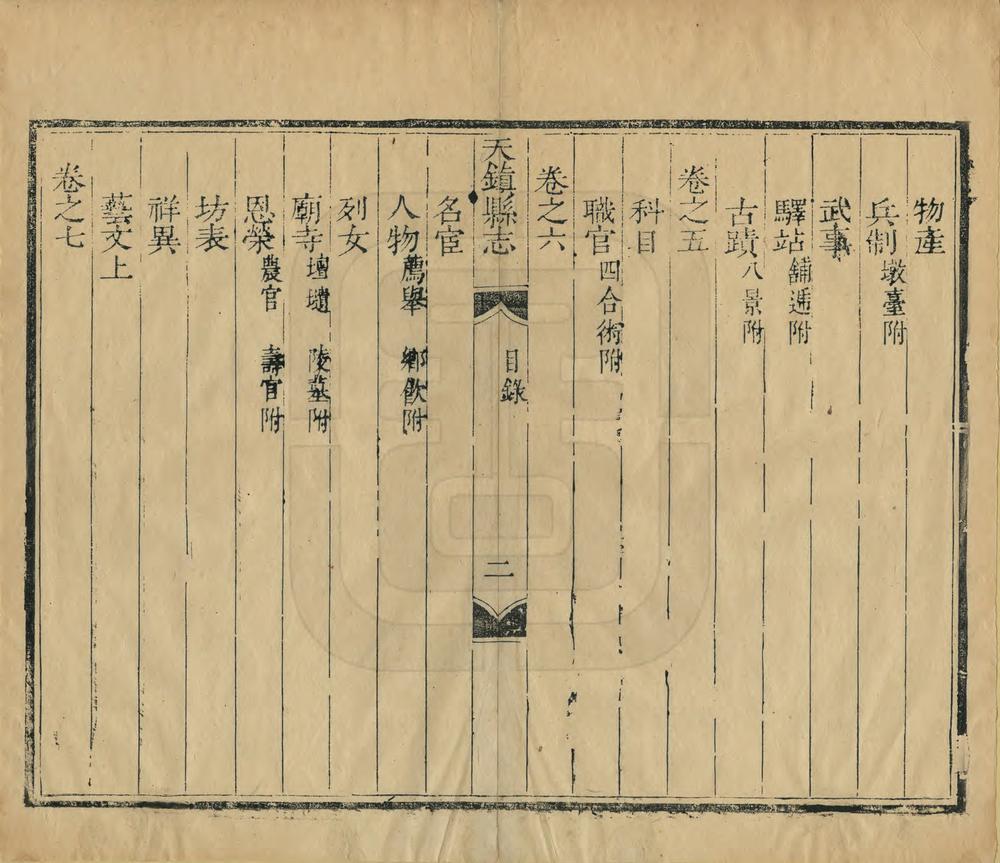 物產
兵制 墩臺附
武事
驛站 舖遞附
古蹟 八景附
卷之五
科目
職官 四合術附
卷之六
天鎮縣志 目錄 二
名宦
人物 薦舉 鄉飲附
列女
廟寺 壇壝 陵墓附
恩榮 農官 壽官附
坊表
祥異
藝文上
卷之七